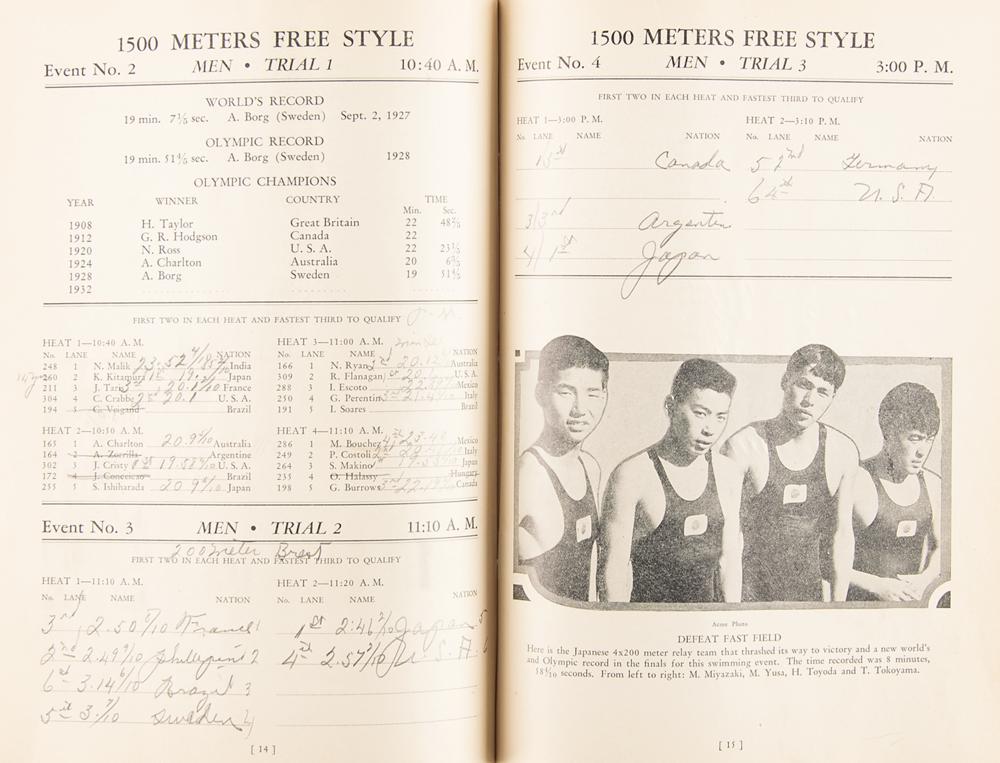 1500 METERS FREE STYLE
Event No. 2 MEN • TRIAL 1 10:40 A. M.
WORLD'S RECORD
19 min. 7⅕ sec. A. Borg (Sweden) Sept. 2, 1927
OLYMPIC RECORD
19 min. 51⅘ sec. A. Borg (Sweden) 1928
OLYMPIC CHAMPIONS
YEAR WINNER COUNTRY TIME
Min. Sec.
1908 H. Taylor Great Britain 22 48⅖
1912 G. R. Hodgson Canada 22
1920 N. Ross U. S. A. 22 23⅕
1924 A. Charlton Australia 20 6⅗
1928 A. Borg Sweden 19 51⅘
1932
FIRST TWO IN EACH HEAT AND FASTEST THIRD TO QUALIFY
HEAT 1—10:40 A. M.
No. LANE NAME NATION
248 1 N. Malik India
260 2 K. Kitamura Japan
211 3 J. Taris France
304 4 C. Crabbe 20.1 U. S. A.
194 5 C. Veigand Brazil
HEAT 2—10:50 A. M.
165 1 A. Charlton 20.9 Australia
164 2 A. Zorrilla Argentine
302 3 J. Cristy 1st 19.58 U. S. A.
172 4 J. Conceicao Brazil
255 5 S. Ishiharada 20.9 Japan
HEAT 3—11:00 A. M.
No. LANE NAME NATION
166 1 N. Ryan Australia
309 2 R. Flanagan U. S. A.
288 3 I. Escoto Mexico
250 4 G. Perentin Italy
191 5 I. Soares Brazil
HEAT 4—11:10 A. M.
286 1 M. Bouchez Mexico
249 2 P. Costoli Italy
264 3 S. Makino Japan
235 4 O. Halassy Hungary
198 5 G. Burrows Canada
Event No. 3 MEN • TRIAL 2 11:10 A. M.
200 meter Brest
FIRST TWO IN EACH HEAT AND FASTEST THIRD TO QUALIFY
HEAT 1—11:10 A. M.
No. LANE NAME NATION
3rd 2.50 /10 France 1
2nd 2.49 /10 2
6th 3.14 /10 Brazil 3
5th 3. /10 Sweden 4
HEAT 2—11:20 A. M.
No. LANE NAME NATION
1st 2:46 /10 Japan 5
4th 2.57 /10 U. S. A. 6
[ 14 ]
1500 METERS FREE STYLE
Event No. 4 MEN • TRIAL 3 3:00 P. M.
FIRST TWO IN EACH HEAT AND FASTEST THIRD TO QUALIFY
HEAT 1—3:00 P. M.
No. LANE NAME NATION
Canada
3 3rd Argentine
4 1st Japan
HEAT 2—3:10 P. M.
No. LANE NAME NATION
5 2nd Germany
6 4th U. S. A.
Acme Photo
DEFEAT FAST FIELD
Here is the Japanese 4x200 meter relay team that thrashed its way to victory and a new world's
and Olympic record in the finals for this swimming event. The time recorded was 8 minutes,
58 4/10 seconds. From left to right: M. Miyazaki, M. Yusa, H. Toyoda and T. Yokoyama.
[ 15 ]